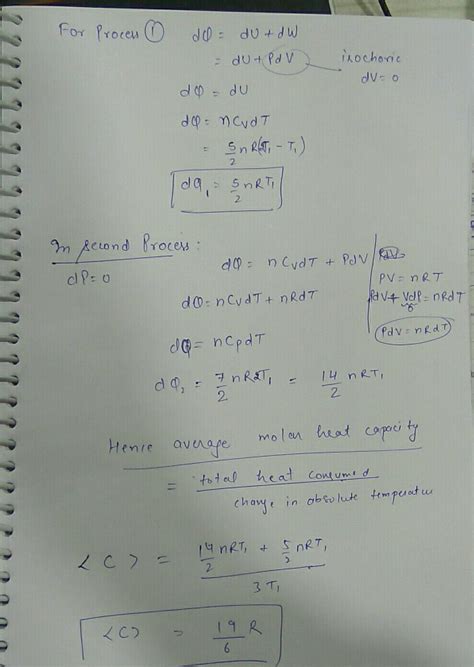 For Process ① dQ = dU + dW
= dU + PdV → isochoric dV = 0
dQ = dU
dQ = nCvdT
= 5/2 nR(2T₁ - T₁)
dQ₁ = 5/2 nRT₁
In second Process:
dP = 0
dQ = nCvdT + PdV
PdV
PV = nRT
dQ = nCvdT + nRdT
PdV + VdP = nRdT
0
dQ = nCpdT
PdV = nRdT
dQ₂ = 7/2 nR2T₁ = 14/2 nRT₁
Hence average molar heat capacity
= total heat consumed / change in absolute temperature
<C> = (14/2 nRT₁ + 5/2 nRT₁) / 3T₁
<C> = 19/6 R